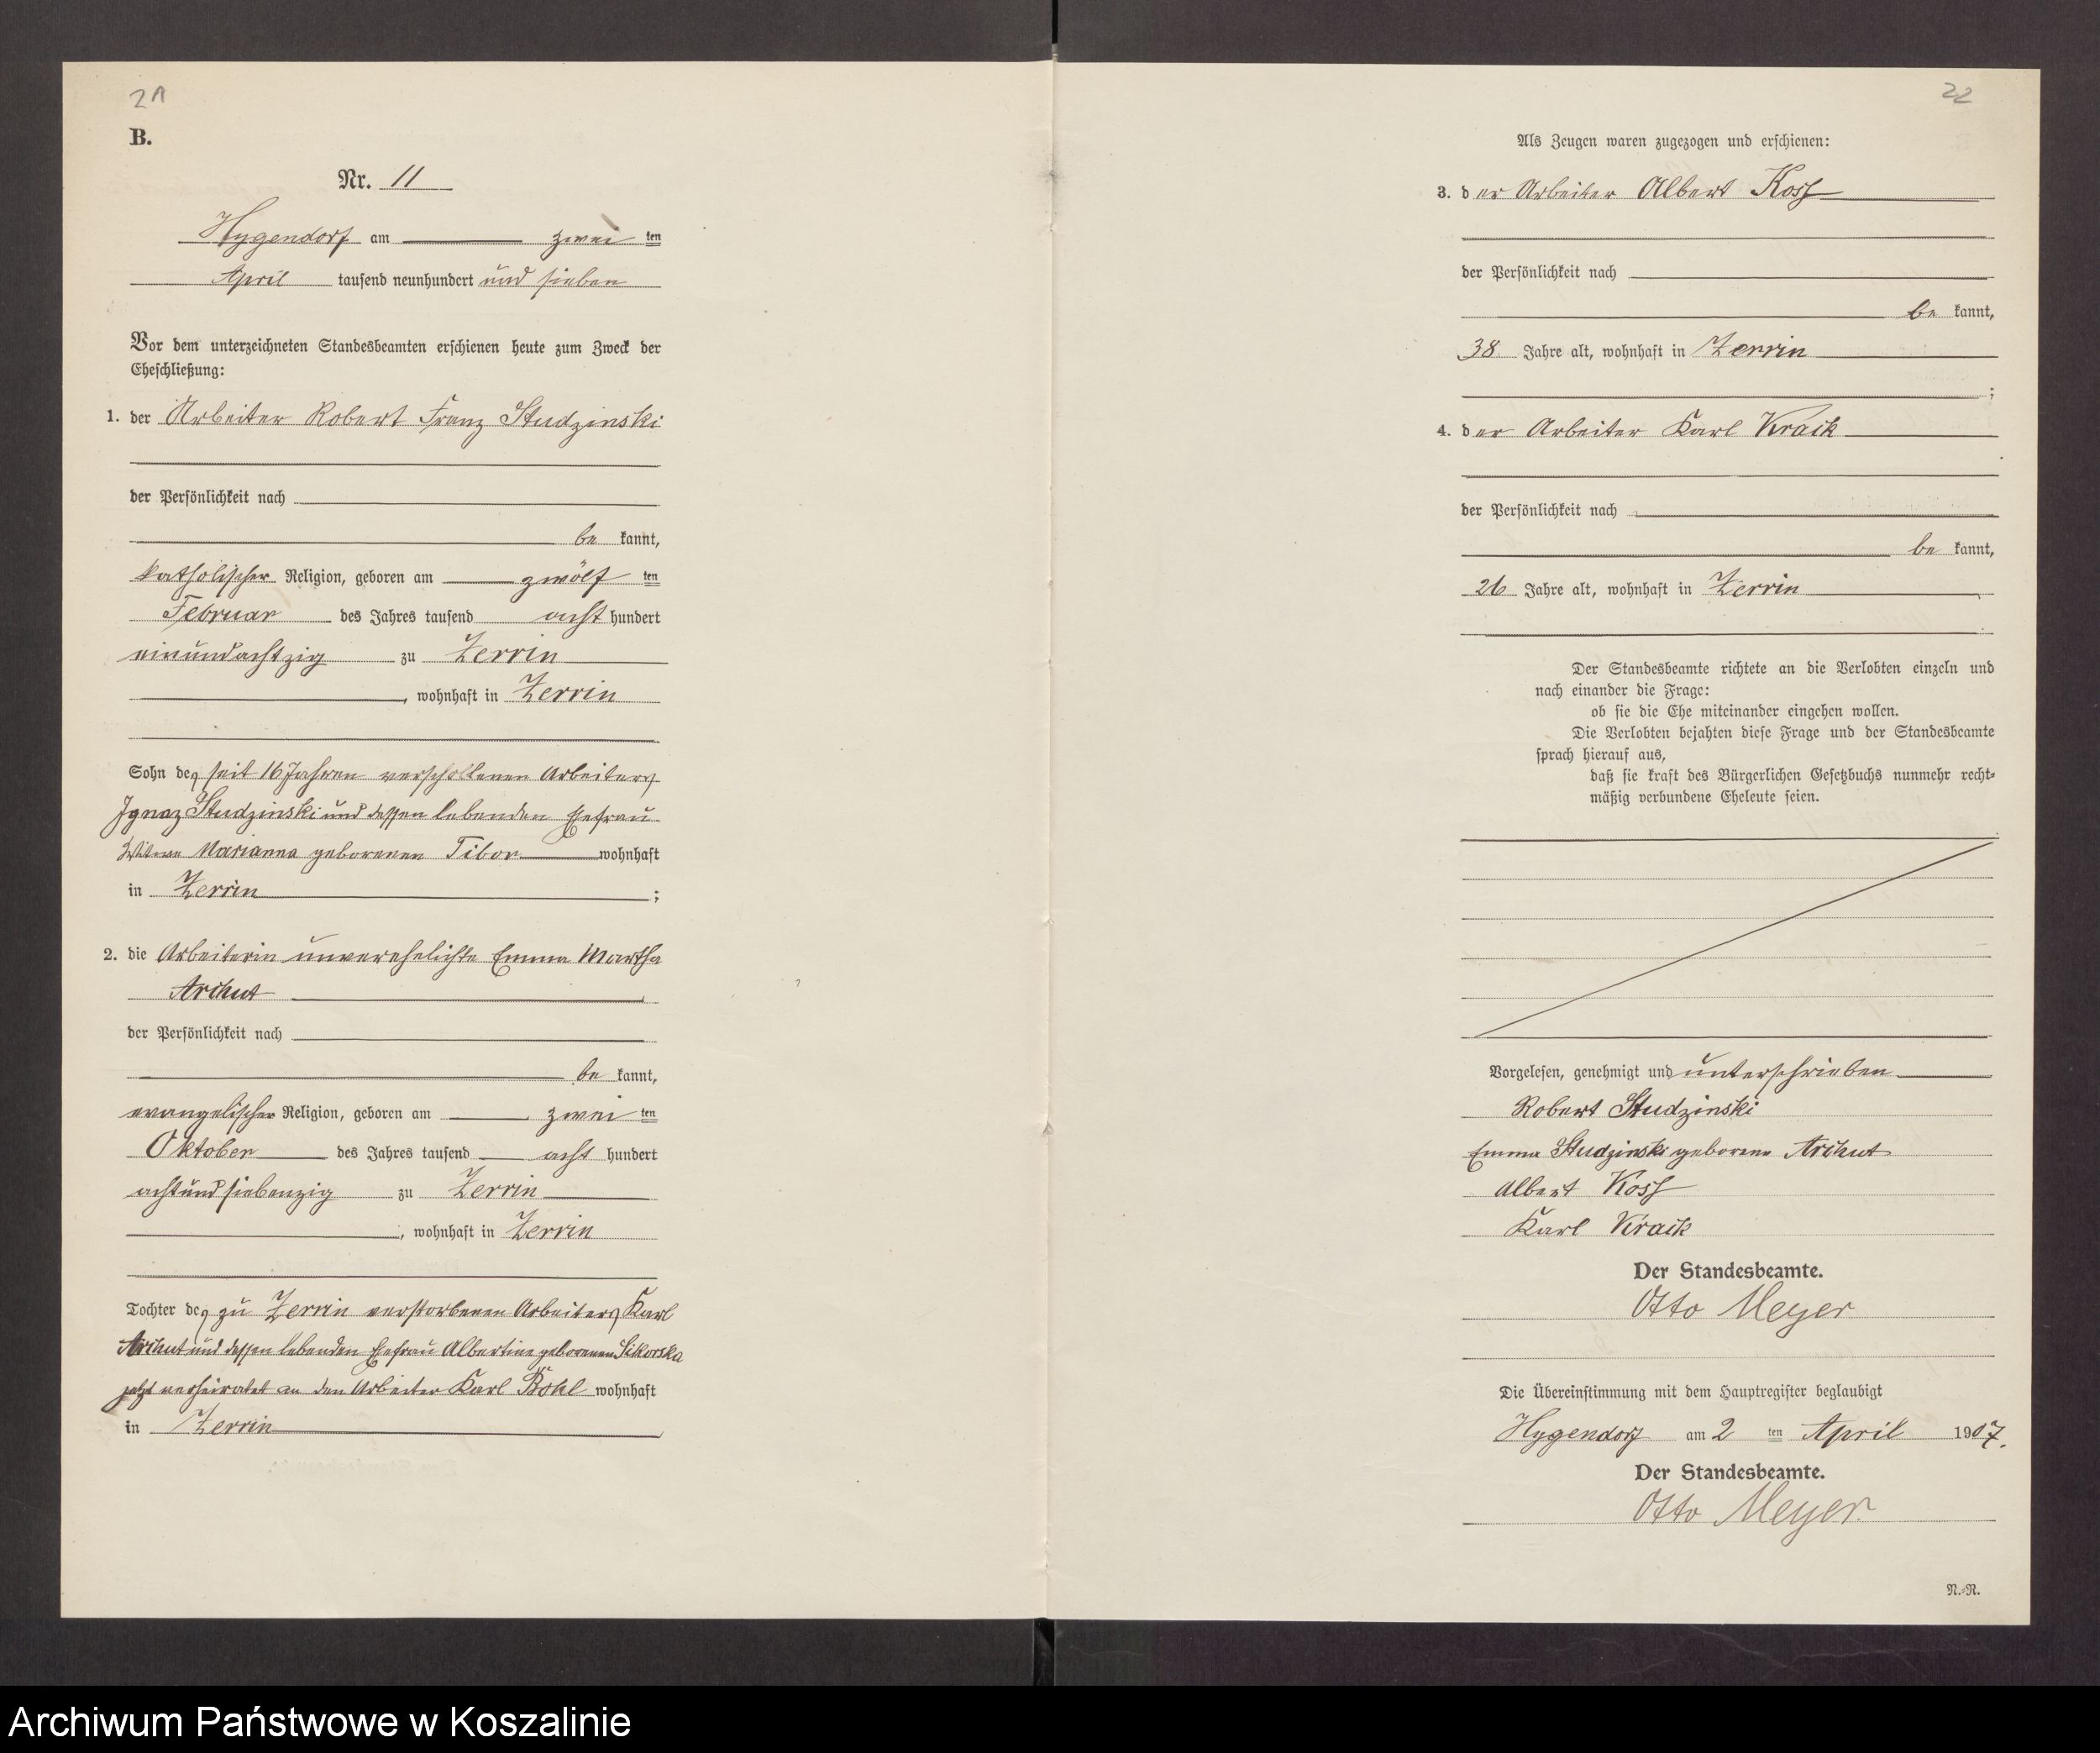 21
B.
Nr. 11
Hygendorf am zwei ten
April tausend neunhundert und sieben
Vor dem unterzeichneten Standesbeamten erschienen heute zum Zweck der
Eheschließung:
1. der Arbeiter Robert Franz Studzinski
der Persönlichkeit nach
be kannt,
katholischer Religion, geboren am zwölf ten
Februar des Jahres tausend acht hundert
einundachtzig zu Zerrin
, wohnhaft in Zerrin
Sohn des seit 16 Jahren verschollenen Arbeiters
Ignaz Studzinski und dessen lebenden Ehefrau
Witwe Marianna geborenen Tibor wohnhaft
in Zerrin ;
2. die Arbeiterin unverehelichte Emma Martha
Arikut
der Persönlichkeit nach
be kannt,
evangelischer Religion, geboren am zwei ten
Oktober des Jahres tausend acht hundert
achtundsiebenzig zu Zerrin
, wohnhaft in Zerrin
Tochter des zu Zerrin verstorbenen Arbeiters Karl
und dessen lebenden Ehefrau Albertine geborenen Sikorska
jetzt verheiratet an den Arbeiter Karl wohnhaft
in Zerrin
22
Als Zeugen waren zugezogen und erschienen:
3. der Arbeiter Albert Koss
der Persönlichkeit nach
be kannt,
38 Jahre alt, wohnhaft in Zerrin
;
4. der Arbeiter Karl Kraik
der Persönlichkeit nach
be kannt,
26 Jahre alt, wohnhaft in Zerrin
Der Standesbeamte richtete an die Verlobten einzeln und
nach einander die Frage:
ob sie die Ehe miteinander eingehen wollen.
Die Verlobten bejahten diese Frage und der Standesbeamte
sprach hierauf aus,
daß sie kraft des Bürgerlichen Gesetzbuchs nunmehr recht-
mäßig verbundene Eheleute seien.
Vorgelesen, genehmigt und unterschrieben
Robert Studzinski
Emma Studzinski geborene Arikut
Albert Koss
Karl Kraik
Der Standesbeamte.
Otto Meyer
Die Übereinstimmung mit dem Hauptregister beglaubigt
Hygendorf am 2 ten April 1907.
Der Standesbeamte.
Otto Meyer
N.-R.
Archiwum Państwowe w Koszalinie